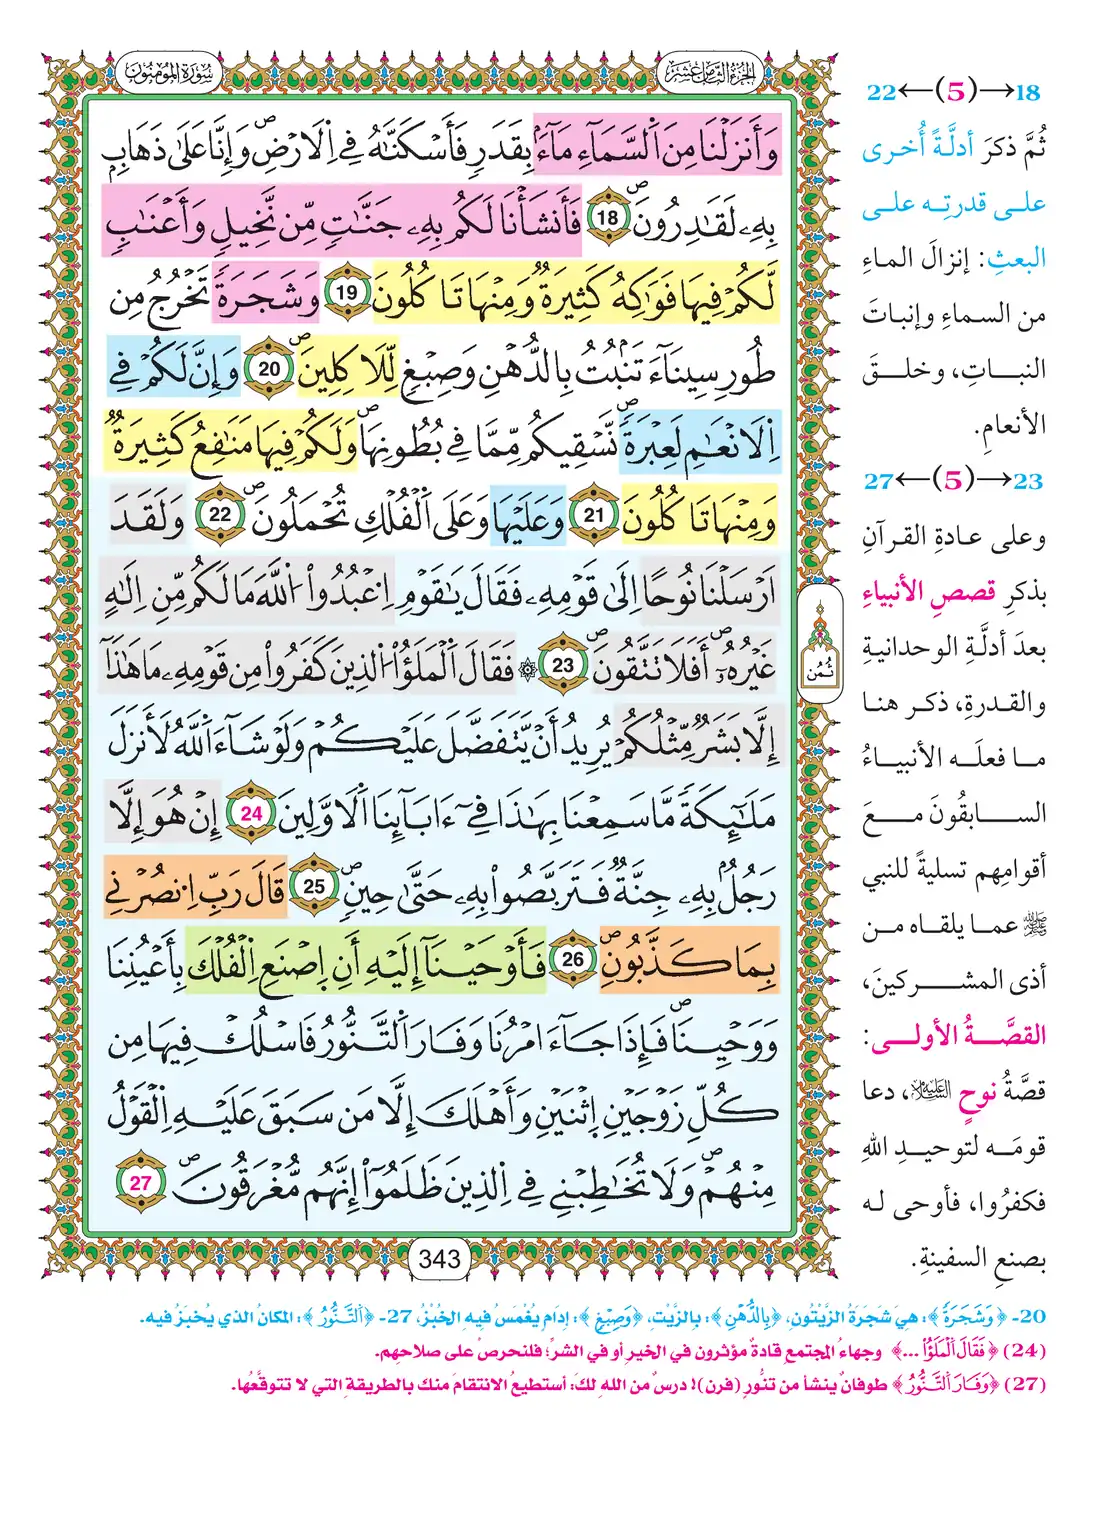 الجزء الثامن عشر
سورة المؤمنون
وَأَنزَلْنَا مِنَ اَ۬لسَّمَآءِ مَآءَۢ بِقَدَرٖ فَأَسْكَنَّٰهُ فِے اِ۬لَارْضِۖ وَإِنَّا عَلَىٰ ذَهَابِۢ
بِهِۦ لَقَٰدِرُونَۖ 18 فَأَنشَأْنَا لَكُم بِهِۦ جَنَّٰتٖ مِّن نَّخِيلٖ وَأَعْنَٰبٖ
لَّكُمْ فِيهَا فَوَٰكِهُ كَثِيرَةٞ وَمِنْهَا تَاكُلُونَ 19 وَشَجَرَةٗ تَخْرُجُ مِن
طُورِ سِينَآءَ تَنۢبُتُ بِالدُّهْنِ وَصِبْغٖ لِّلَاكِلِينَۖ 20 وَإِنَّ لَكُمْ فِے
اِ۬لَانْعَٰمِ لَعِبْرَةٗۖ نَّسْقِيكُم مِّمَّا فِے بُطُونِهَاۖ وَلَكُمْ فِيهَا مَنَٰفِعُ كَثِيرَةٞ
وَمِنْهَا تَاكُلُونَ 21 وَعَلَيْهَا وَعَلَى اَ۬لْفُلْكِ تُحْمَلُونَۖ 22 وَلَقَدَ
اَرْسَلْنَا نُوحاً اِلَىٰ قَوْمِهِۦ فَقَالَ يَٰقَوْمِ اِ۟عْبُدُواْ اُ۬للَّهَ مَا لَكُم مِّنِ اِلَٰهٍ
غَيْرُهُۥٓۖ أَفَلَا تَتَّقُونَۖ 23 ۞ فَقَالَ اَ۬لْمَلَؤُاْ اُ۬لذِينَ كَفَرُواْ مِن قَوْمِهِۦ مَا هَٰذَآ
إِلَّا بَشَرٞ مِّثْلُكُمْ يُرِيدُ أَنْ يَّتَفَضَّلَ عَلَيْكُمْ وَلَوْ شَآءَ اَ۬للَّهُ لَأَنزَلَ
مَلَٰٓئِكَةٗ مَّا سَمِعْنَا بِهَٰذَا فِےٓ ءَابَآئِنَا اَ۬لَاوَّلِينَ 24 إِنْ هُوَ إِلَّا
رَجُلُۢ بِهِۦ جِنَّةٞ فَتَرَبَّصُواْ بِهِۦ حَتَّىٰ حِينٖۖ 25 قَالَ رَبِّ اِ۟نصُرْنِے
بِمَا كَذَّبُونِۖ 26 فَأَوْحَيْنَآ إِلَيْهِ أَنِ اِ۪صْنَعِ اِ۬لْفُلْكَ بِأَعْيُنِنَا
وَوَحْيِنَاۖ فَإِذَا جَآءَ امْرُنَا وَفَارَ اَ۬لتَّنُّورُ فَاسْلُكْ فِيهَا مِن
كُلِّ زَوْجَيْنِ اِ۪ثْنَيْنِ وَأَهْلَكَ إِلَّا مَن سَبَقَ عَلَيْهِ اِ۬لْقَوْلُ
مِنْهُمْۖ وَلَا تُخَٰطِبْنِے فِے اِ۬لذِينَ ظَلَمُوٓاْ إِنَّهُم مُّغْرَقُونَۖ 27
ثُمُن
343
22←(5)→18
ثُمَّ ذكرَ أدلَّةً أُخرى
على قدرتِه على
البعثِ: إنزالَ الماءِ
من السماءِ وإنباتَ
النباتِ، وخلقَ
الأنعامِ.
27←(5)→23
وعلى عادةِ القرآنِ
بذكرِ قصصِ الأنبياءِ
بعدَ أدلَّةِ الوحدانيةِ
والقدرةِ، ذكر هنا
ما فعلَه الأنبياءُ
السابقُونَ مع
أقوامِهم تسليةً للنبي
ﷺ عما يلقاه من
أذى المشركينَ،
القصَّةُ الأولى:
قصَّةُ نوحٍ عليه السلام، دعا
قومَه لتوحيدِ اللهِ
فكفرُوا، فأوحى له
بصنعِ السفينةِ.
20- ﴿وَشَجَرَةً﴾: هِيَ شَجَرَةُ الزَّيْتُونِ، ﴿بِالدُّهْنِ﴾: بِالزَّيْتِ، ﴿وَصِبْغٍ﴾: إِدَامٍ يُغْمَسُ فِيهِ الخُبْزُ، 27- ﴿اَلتَّنُّورُ﴾: المكانُ الذي يُخبَزُ فيه.
(24) ﴿فَقَالَ اَلْمَلَؤُاْ ...﴾ وجهاءُ المجتمعِ قادةٌ مؤثرون في الخيرِ أو في الشرِّ؛ فلنحرصْ على صلاحِهِم.
(27) ﴿وَفَارَ اَلتَّنُّورُ﴾ طوفانٌ ينشأ من تنُّورٍ (فرن)! درسٌ من اللهِ لكَ: أستطيعُ الانتقامَ منك بالطريقةِ التي لا تتوقَّعُها.